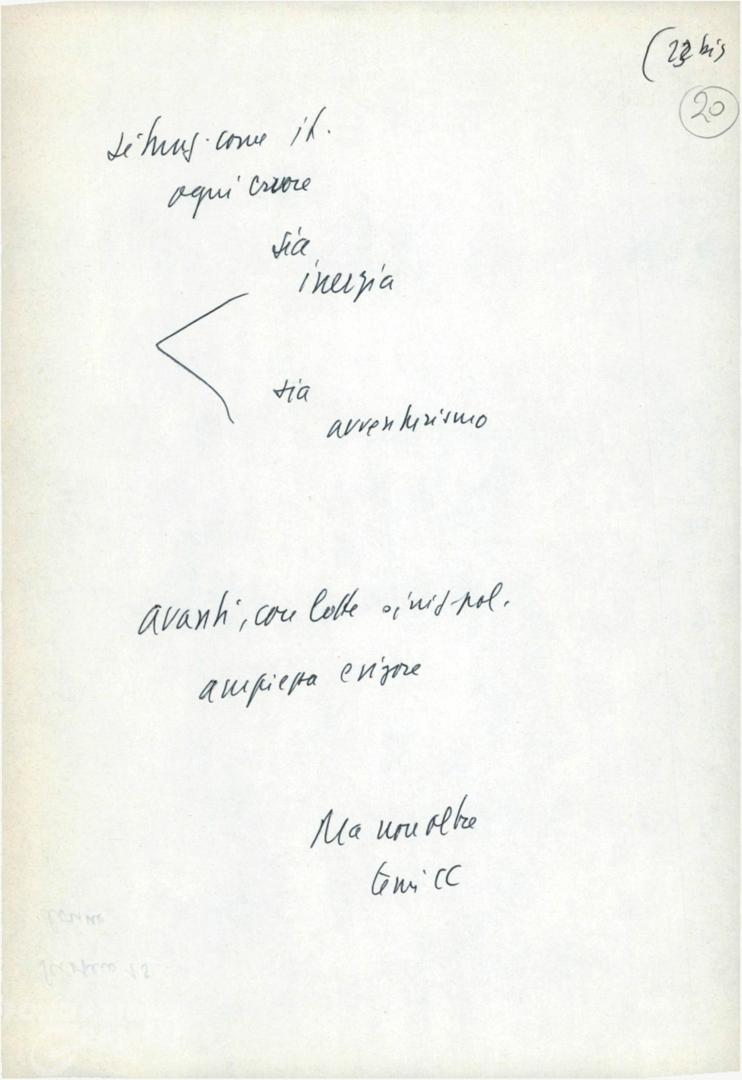 (22 bis
20
come it.
ogni errore
sia
inerzia
sia
avventurismo
avanti, con lotte pol.
ampiezza e vigore
Ma non oltre
temi CC